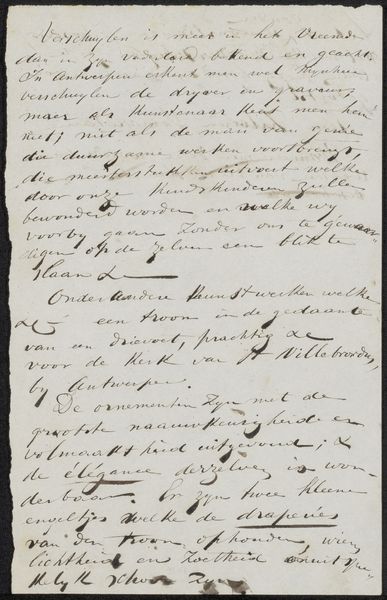 Verschuylen is meer in het Vreemde
dan in zyn vaderland bekend en geacht.
In Antwerpen erkent men wel Mynheer
verschuylen de dryver en graveur,
maer als Kunstenaar Kent men hem
niet; niet als de man van genie
die duurzame werken voortbrengt,
die meesterstukken uitvoert welke
door onze Kindskinderen zullen
bewonderd worden en welke wy
voorby gaan zonder ons te gewaar-
digen op de zelven een blik te
slaan &
Onder andere Kunstwerken welke
&c een troon in de gedaante
van een drievoet, prachtig &c
voor de Kerk van St Willebrordus,
by Antwerpen.
De ornementen zyn met de
grootste naauwkeurigheid en
volmaaktheid uitgevoerd; &
de élégance derzelver is won-
derbaar. Er zyn twee kleine
engeltjes welke de draperiés
van den troon ophouden, wier
lichtheid en zoetheid
schoon zyn